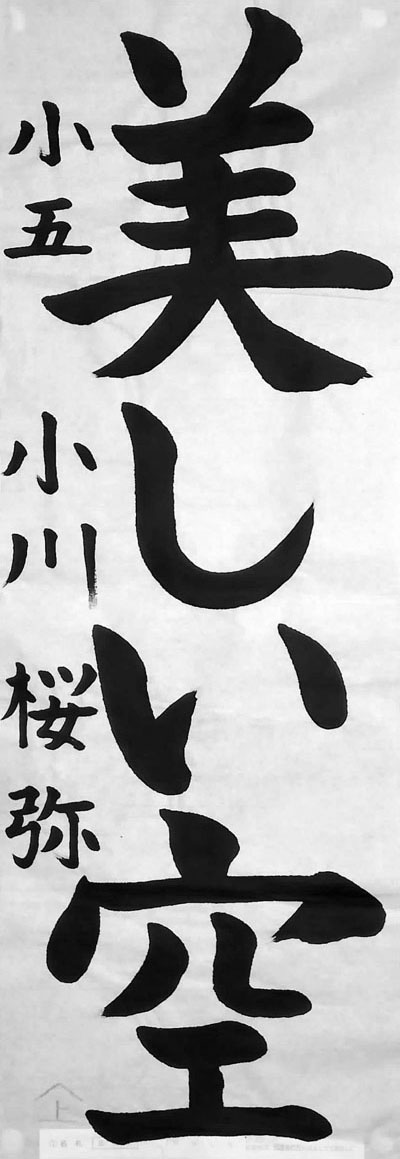 美しい空
小五 小川 桜弥
上